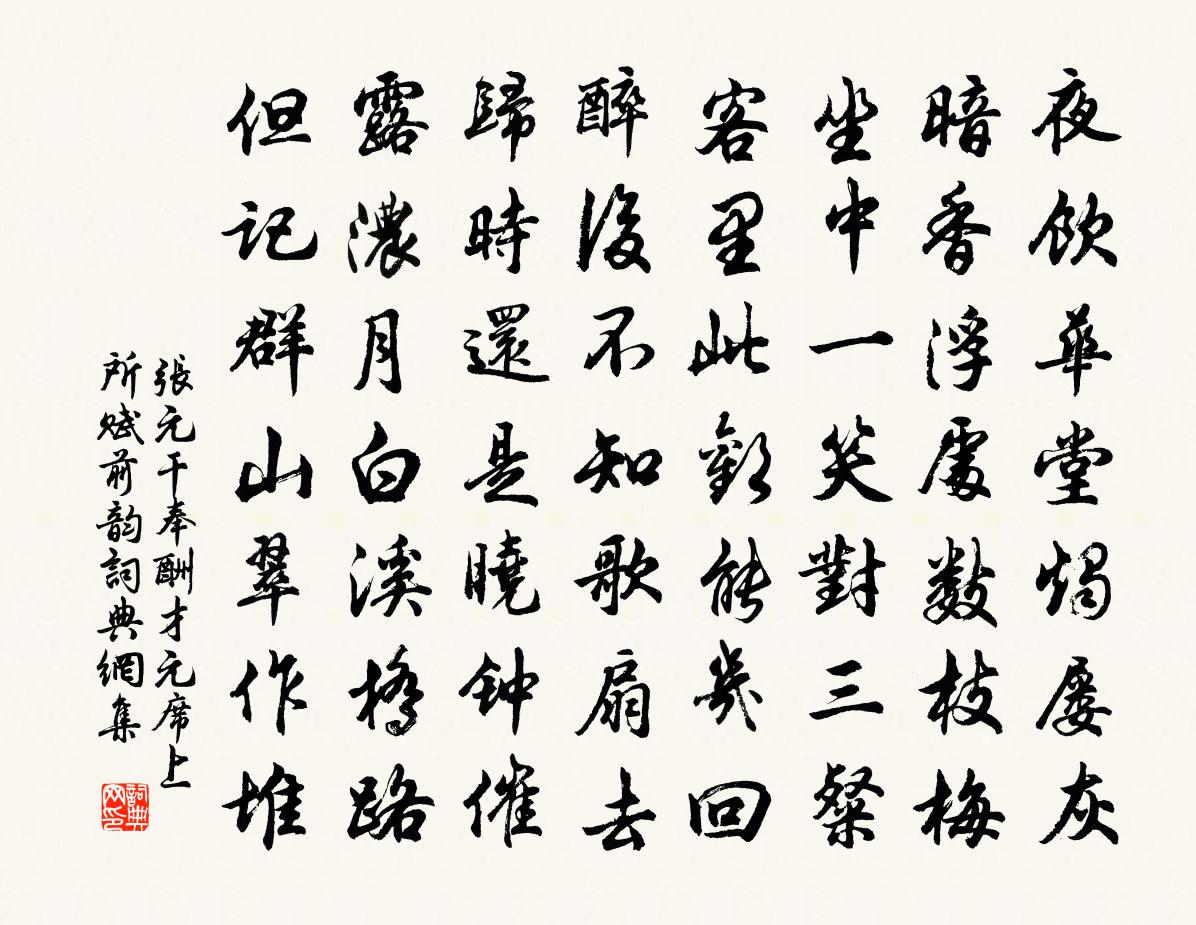 夜飲華堂燭屡灰
暗香浮處數枝梅
坐中一笑對三粲
客里此歡能幾回
醉後不知歌扇去
歸時還是曉钟催
露濃月白溪橋路
但记群山翠作堆
張元干奉酬才元席上
所赋前韵詞典網集
詞典网印